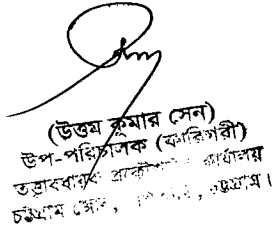 (উত্তম কুমার সেন)
উপ-পরিচালক (কারিগরী)
তত্ত্বাবধায়ক প্রকৌশলীর কার্যালয়
চট্টগ্রাম জোন, চট্টগ্রাম।